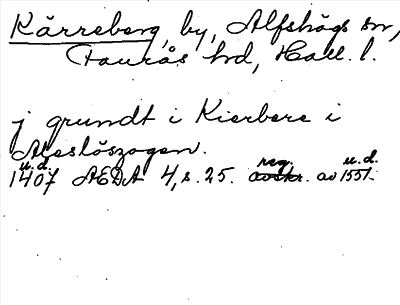 Kärreberg, by, Alfshögs sn,
Faurås hd, Hall. l.
j grundt i Kierbere i
Alfshöszogen.
u.d. reg. u.d.
1407 AEDA 4, s. 25. avskr. av 1551.